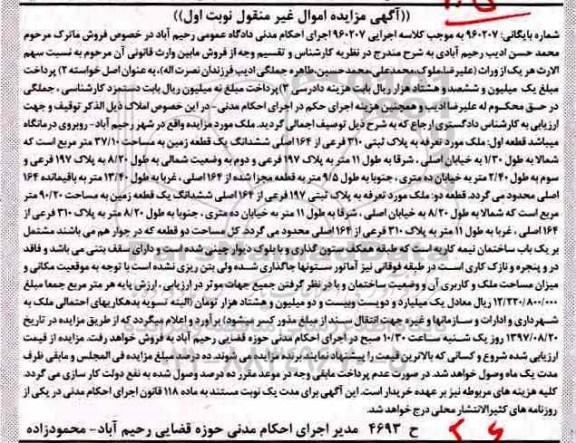 ((آگهی مزایده اموال غیر منقول نوبت اول))
شماره بایگانی: 960207 به موجب کلاسه اجرایی 960207 اجرای احکام مدنی دادگاه عمومی رحیم آباد در خصوص فروش ماترک مرحوم
محمد حسن ادیب رحیم آبادی به شرح مندرج در نظریه کارشناس و تقسیم وجه حاصل از فروش مابین وارث قانونی آن مرحوم به نسبت سهم
الارث هر یک از وراث (علیرضا، ملوک، محمدعلی، محمدحسین، طاهره جملگی ادیب فرزندان نصرت اله)، به عنوان اصل خواسته 2) پرداخت
مبلغ یک میلیون و ششصد و هشتاد هزار ریال بابت هزینه دادرسی 3) پرداخت مبلغ نه میلیون ریال بابت دستمزد کارشناسی، جملگی
در حق محکوم له علیرضا ادیب و همچنین هزینه اجرای حکم در اجرای احکام مدنی- در این خصوص املاک ذیل الذکر توقیف و جهت
ارزیابی به کارشناس دادگستری ارجاع که به شرح ذیل توصیف اجمالی گردید. ملک مورد مزایده واقع در شهر رحیم آباد- روبروی درمانگاه
میباشد قطعه اول: ملک مورد تعرفه به پلاک ثبتی 310 فرعی از 164 اصلی ششدانگ یک قطعه زمین به مساحت 37/10 متر مربع است که
شمالا به طول 1/30 به خیابان اصلی، شرقا به طول 11 متر به پلاک 197 فرعی و دوم به وضعیت شمالی به طول 8/20 به پلاک 197 فرعی و
سوم به طول 2/40 متر به خیابان ده متری، جنوبا به طول 9/5 متر به قطعه مجزا شده از 164 اصلی، غربا به طول 13/40 متر به باقیمانده 164
اصلی محدود می گردد. قطعه دو: ملک مورد تعرفه به پلاک ثبتی 197 فرعی از 164 اصلی ششدانگ یک قطعه زمین به مساحت 90/20 متر
مربع است که شمالا به طول 8/20 به خیابان اصلی، شرقا به طول 11 متر به خیابان ده متری، جنوبا به طول 8/20 متر به پلاک 310 فرعی از
164 اصلی، غربا به طول 11 متر به پلاک 310 فرعی از 164 اصلی محدود می گردد. کل مساحت دو قطعه که در جوار هم می باشند مشتمل
بر یک باب ساختمان نیمه کاره است که طبقه همکف ستون گذاری و با بلوک دیوار چینی شده است و دارای سقف بتنی می باشد و فاقد
در و پنجره و نازک کاری است در طبقه فوقانی نیز آماتور ستونها جاگذاری شده ولی بتن ریزی نشده است با توجه به موقعیت مکانی و
میزان مساحت ملک و کاربری آن و وضعیت ساختمان و با در نظر گرفتن جمیع جهات موثر در ارزیابی، ارزش پایه هر متر مربع جمعا مبلغ
12/220/800/000 ریال معادل یک میلیارد و دویست وبیست و دو میلیون و هشتاد هزار تومان (البته تسویه بدهکاریهای احتمالی ملک به
شهرداری و ادارات و سازمانها و غیره جهت انتقال سند از مبلغ مذکور کسر میشود) برآورد و اعلام میگردد که از طریق مزایده در تاریخ
1397/08/20 روز یک شنبه ساعت 10/30 صبح در اجرای احکام مدنی حوزه قضایی رحیم آباد به فروش خواهد رفت. مزایده از قیمت
ارزیابی شده شروع و کسانی که بالاترین قیمت را پیشنهاد نمایند برنده مزایده می شوند. ده درصد مبلغ مزایده فی المجلس و مابقی ظرف
مدت یک ماه وصول خواهد شد. در صورت عدم پرداخت مابقی وجه در موعد مقرر ده درصد وصول شده به نفع دولت کار سازی می گردد
کلیه هزینه های مربوطه نیز بر عهده خریدار است. این آگهی برای مدت یک نوبت مستند به ماده 118 قانون اجرای احکام مدنی در یکی از
روزنامه های کثیرالانتشار محلی درج خواهد شد.
ح 4693 مدیر اجرای احکام مدنی حوزه قضایی رحیم آباد- محمودزاده